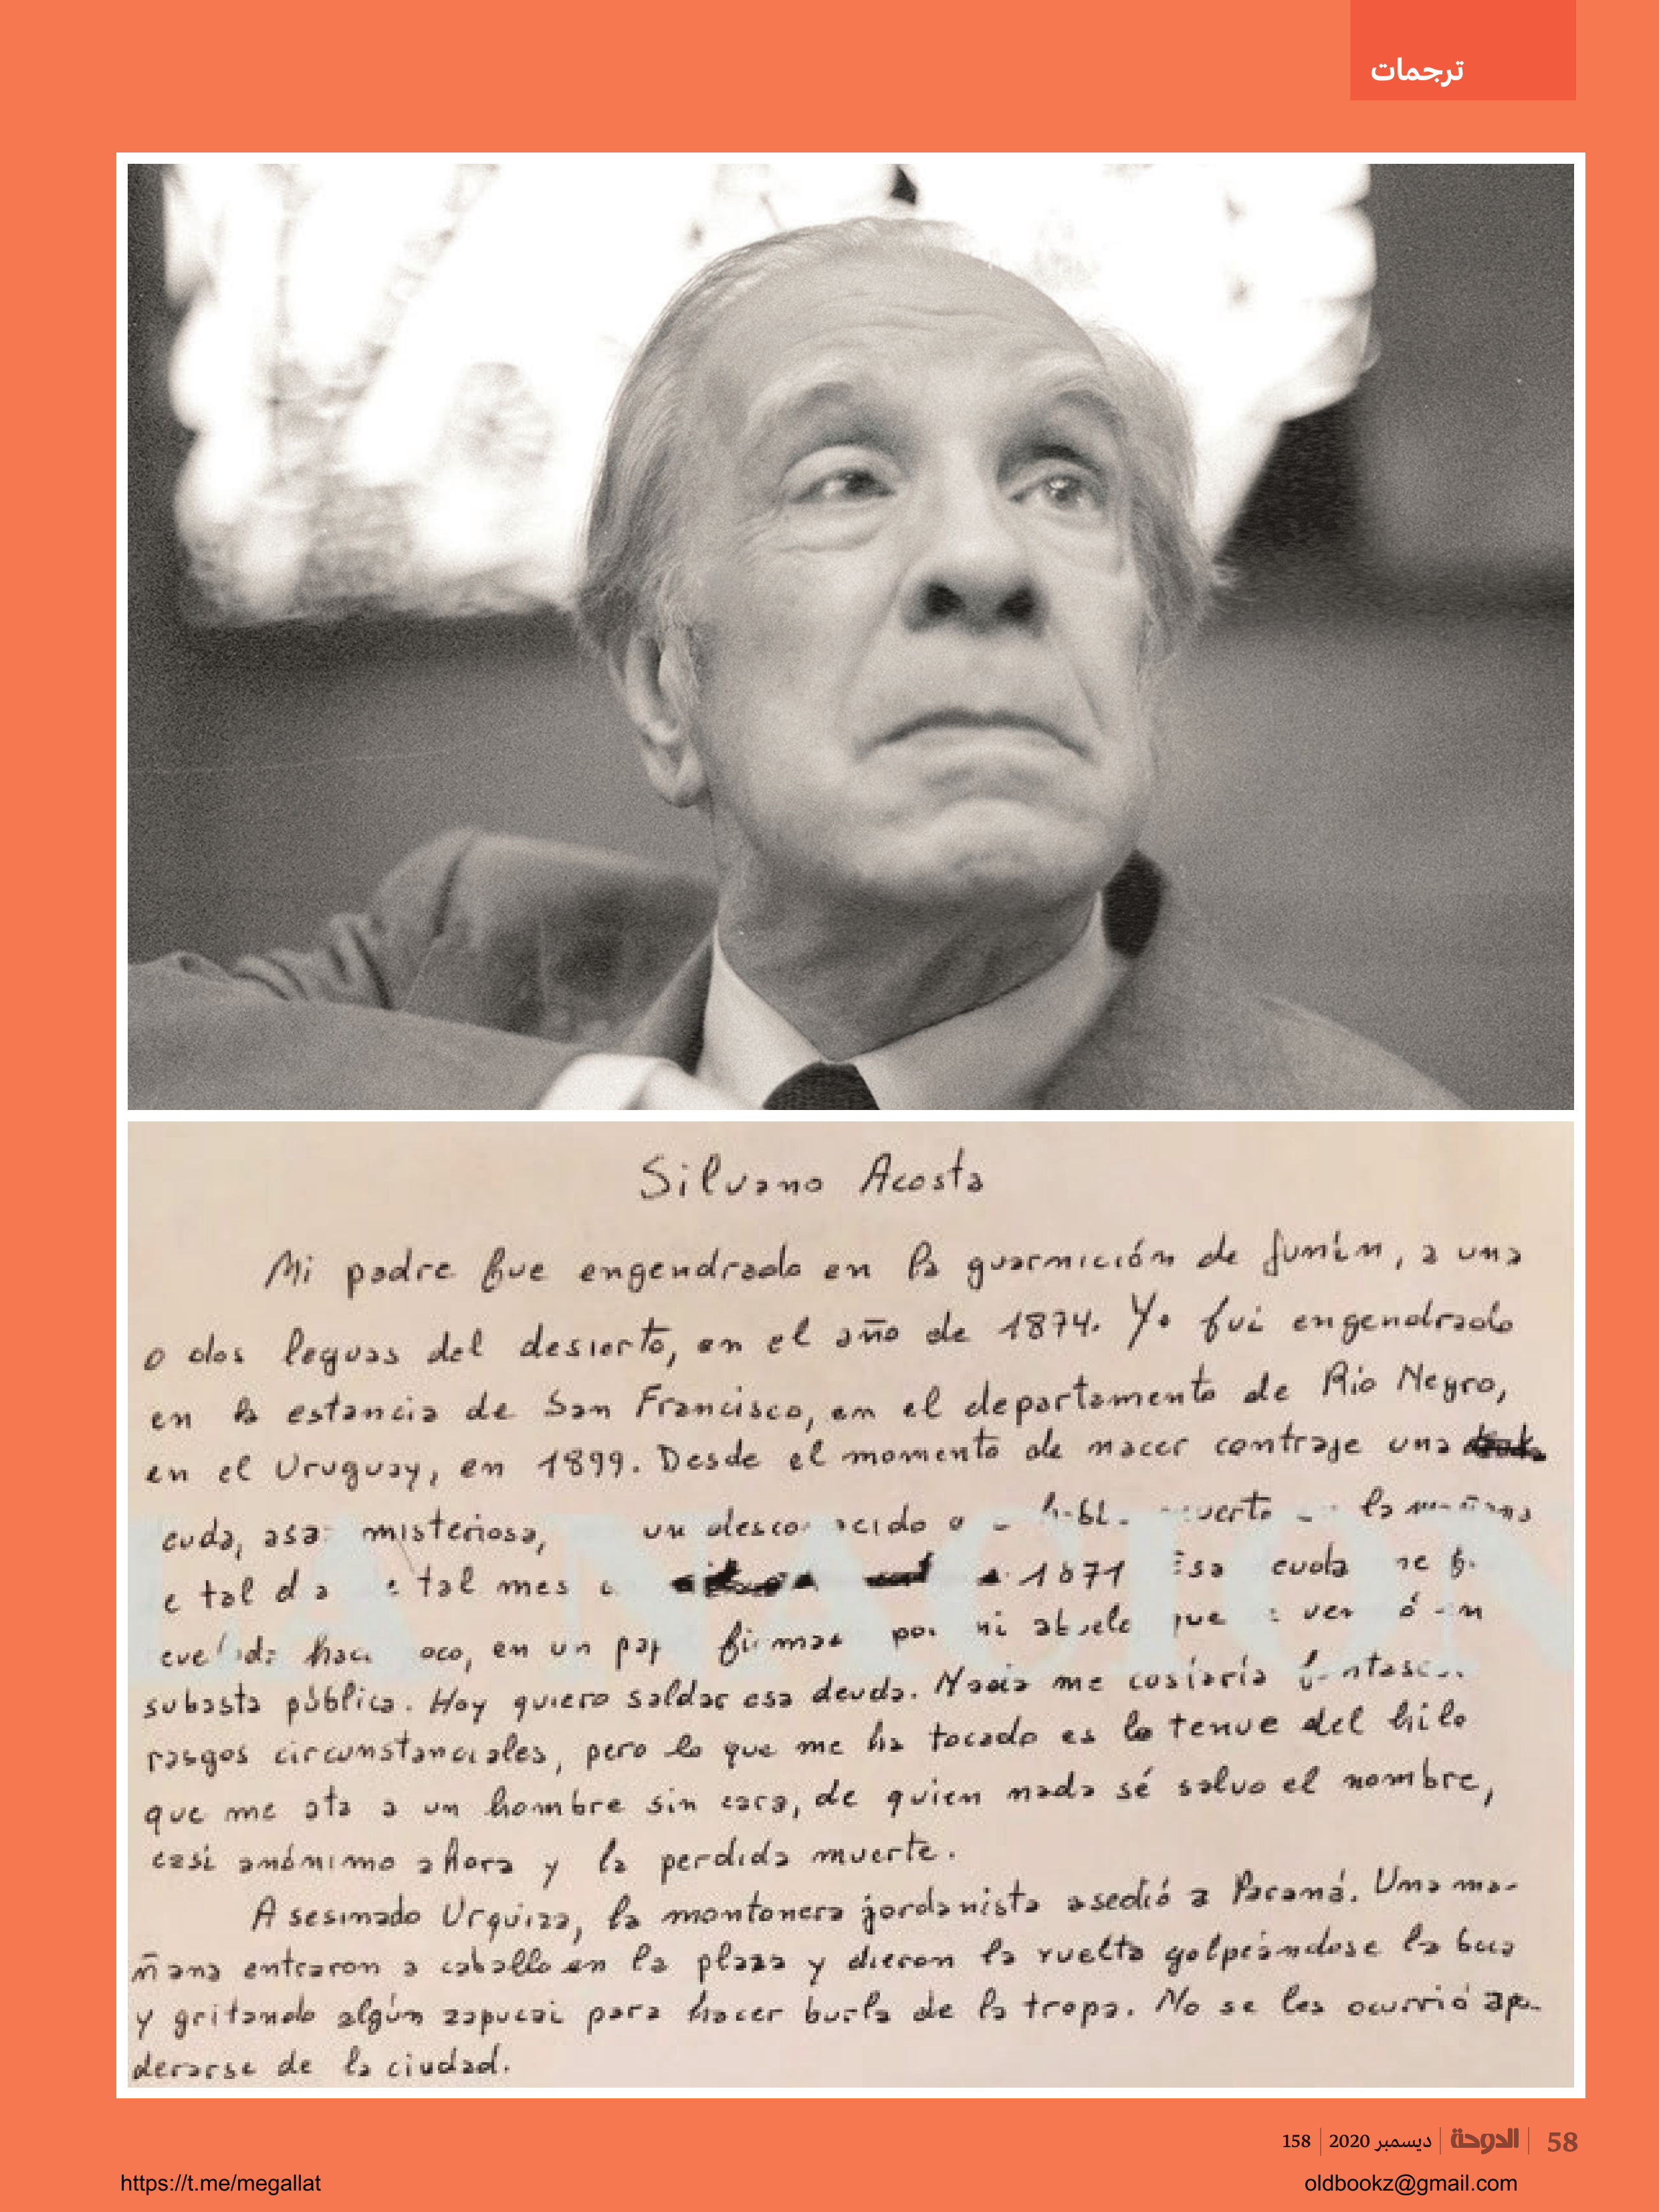 ترجمات
Silvano Acosta
Mi padre fue engendrado en la guarnición de Junín, a una
o dos leguas del desierto, en el año de 1874. Yo fui engendrado
en la estancia de San Francisco, en el departamento de Río Negro,
en el Uruguay, en 1899. Desde el momento de nacer contraje una
euda, asa misteriosa, un desco ocido
e tal d a e tal mes 1871 Esa euda
oco, en un pap firmad por mi abuelo que
subasta pública. Hoy quiero saldar esa deuda. Nada me costaría
rasgos circunstanciales, pero lo que me ha tocado es lo tenue del hilo
que me ata a un hombre sin cara, de quien nada sé salvo el nombre,
casi anónimo ahora y la perdida muerte.
Asesinado Urquiza, la montonera jordanista asedió a Paraná. Una ma-
ñana entraron a caballo en la plaza y dieron la vuelta golpeándose la boca
y gritando algún zapucai para hacer burla de la tropa. No se les ocurrió apo-
derarse de la ciudad.
LA NACION
58 | الدوحة | ديسمبر 2020 | 158
https://t.me/megallat
oldbookz@gmail.com